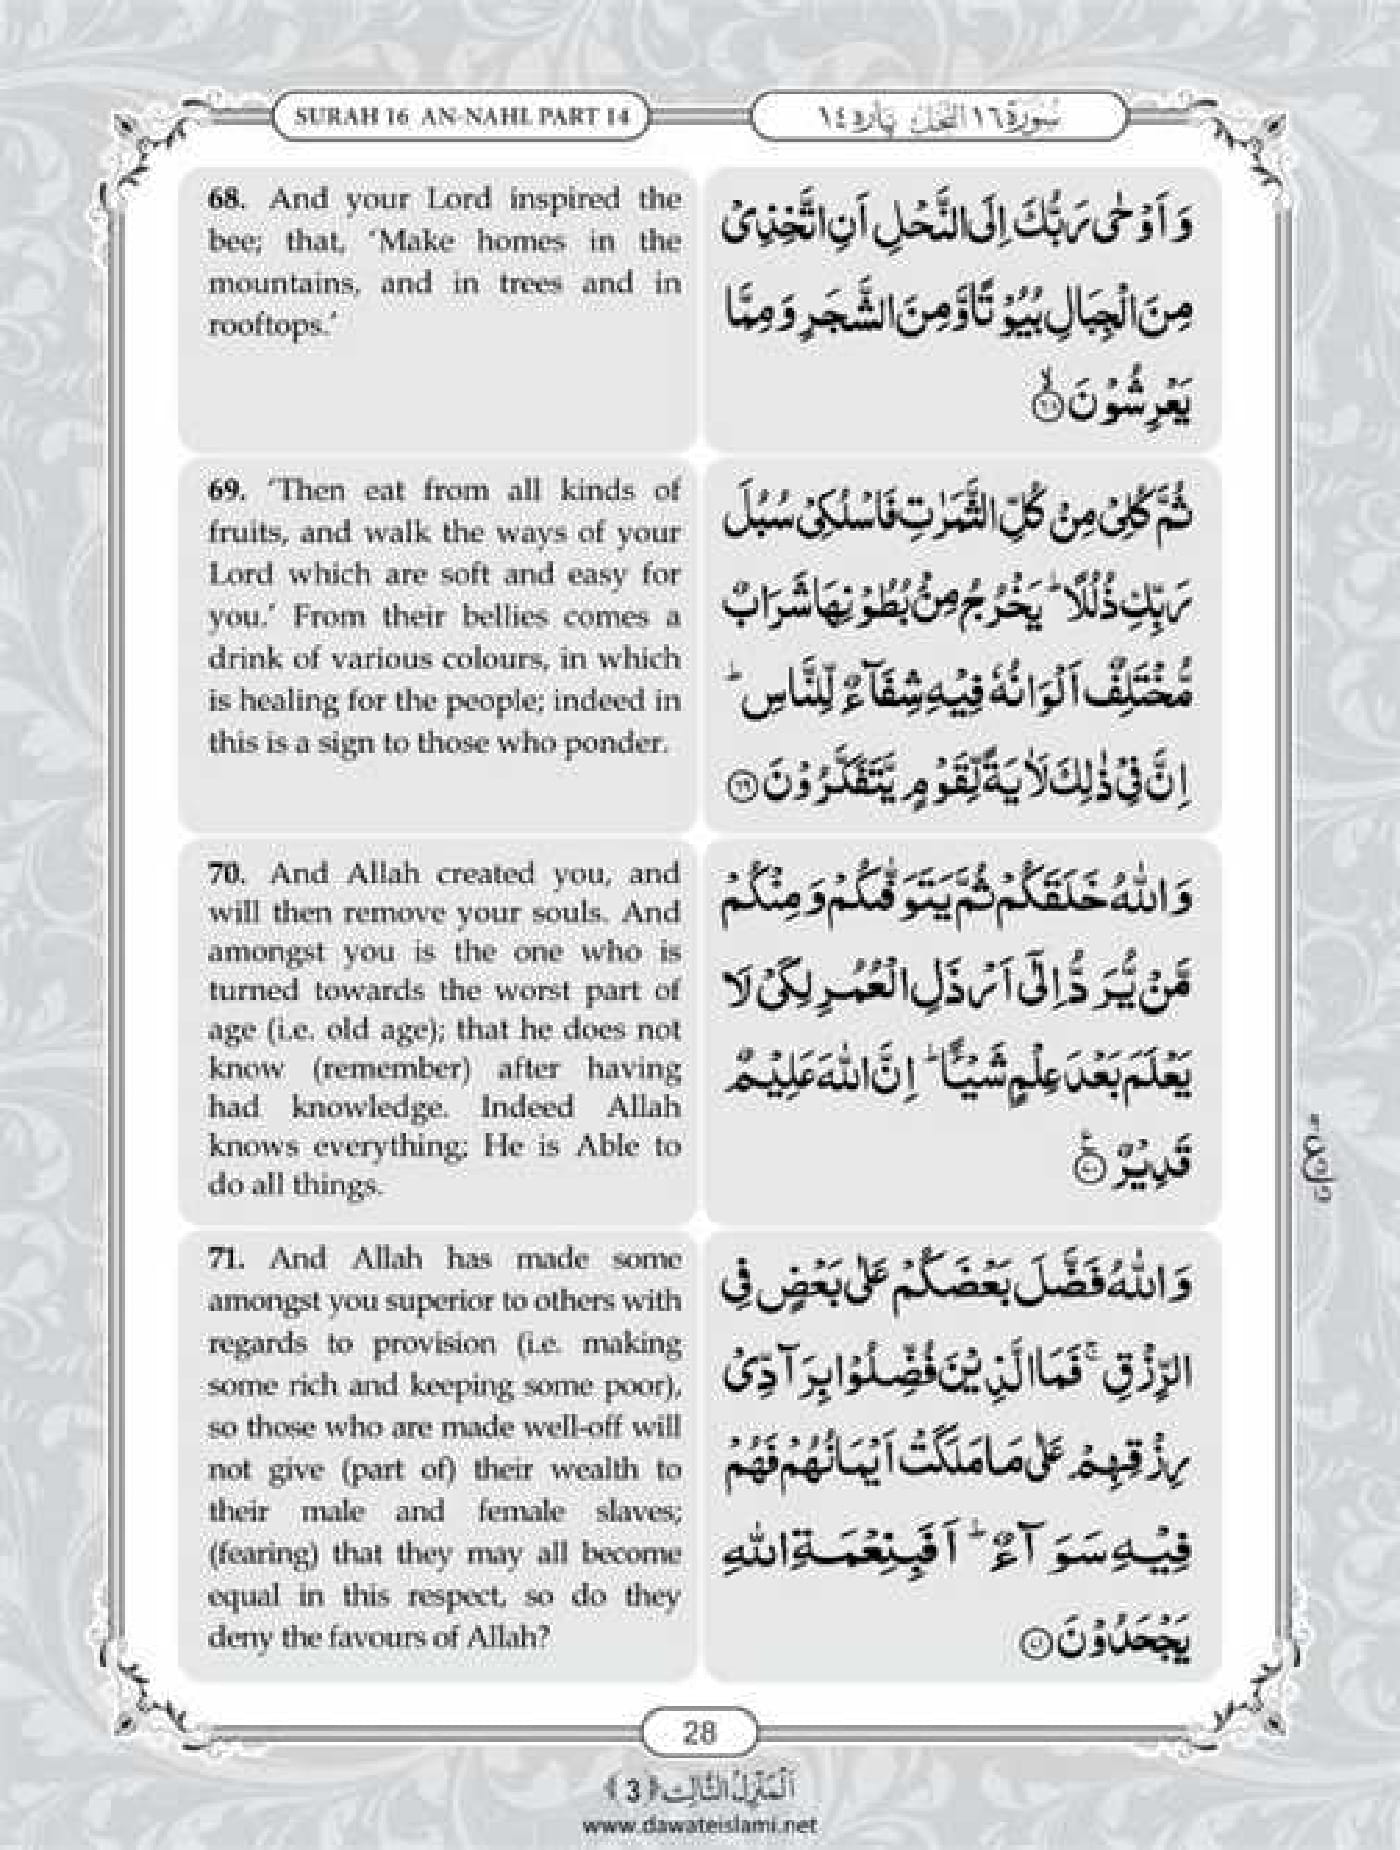 SURAH 16 AN-NAHL PART 14
سُوْرَةُ ١٦ النَّحْل پَارہ ١٤
68. And your Lord inspired the
bee; that, ‘Make homes in the
mountains, and in trees and in
rooftops.’
وَ اَوْحٰی رَبُّكَ اِلَی النَّحْلِ اَنِ اتَّخِذِیْ
مِنَ الْجِبَالِ بُیُوْتًا وَّ مِنَ الشَّجَرِ وَ مِمَّا
یَعْرِشُوْنَ ۙ﴿۶۸﴾
69. ‘Then eat from all kinds of
fruits, and walk the ways of your
Lord which are soft and easy for
you.’ From their bellies comes a
drink of various colours, in which
is healing for the people; indeed in
this is a sign to those who ponder.
ثُمَّ كُلِیْ مِنْ كُلِّ الثَّمَرٰتِ فَاسْلُكِیْ سُبُلَ
رَبِّكِ ذُلُلًا ؕ یَخْرُجُ مِنْۢ بُطُوْنِهَا شَرَابٌ
مُّخْتَلِفٌ اَلْوَانُهٗ فِیْهِ شِفَآءٌ لِّلنَّاسِ ؕ
اِنَّ فِیْ ذٰلِكَ لَاٰیَةً لِّقَوْمٍ یَّتَفَكَّرُوْنَ ﴿۶۹﴾
70. And Allah created you, and
will then remove your souls. And
amongst you is the one who is
turned towards the worst part of
age (i.e. old age); that he does not
know (remember) after having
had knowledge. Indeed Allah
knows everything; He is Able to
do all things.
وَ اللّٰهُ خَلَقَكُمْ ثُمَّ یَتَوَفّٰىكُمْ وَ مِنْكُمْ
مَّنْ یُّرَدُّ اِلٰۤی اَرْذَلِ الْعُمُرِ لِكَیْ لَا
یَعْلَمَ بَعْدَ عِلْمٍ شَیْــٴًـا ؕ اِنَّ اللّٰهَ عَلِیْمٌ
قَدِیْرٌ ﴿۷۰﴾
71. And Allah has made some
amongst you superior to others with
regards to provision (i.e. making
some rich and keeping some poor),
so those who are made well-off will
not give (part of) their wealth to
their male and female slaves;
(fearing) that they may all become
equal in this respect, so do they
deny the favours of Allah?
وَ اللّٰهُ فَضَّلَ بَعْضَكُمْ عَلٰی بَعْضٍ فِی
الرِّزْقِ ۚ فَمَا الَّذِیْنَ فُضِّلُوْا بِرَآدِّیْ
رِزْقِهِمْ عَلٰی مَا مَلَكَتْ اَیْمَانُهُمْ فَهُمْ
فِیْهِ سَوَآءٌ ؕ اَفَبِنِعْمَةِ اللّٰهِ
یَجْحَدُوْنَ ﴿۷۱﴾
28
اَلْمَنْزِلُ الثَّالِث ﴿3﴾
www.dawateislami.net